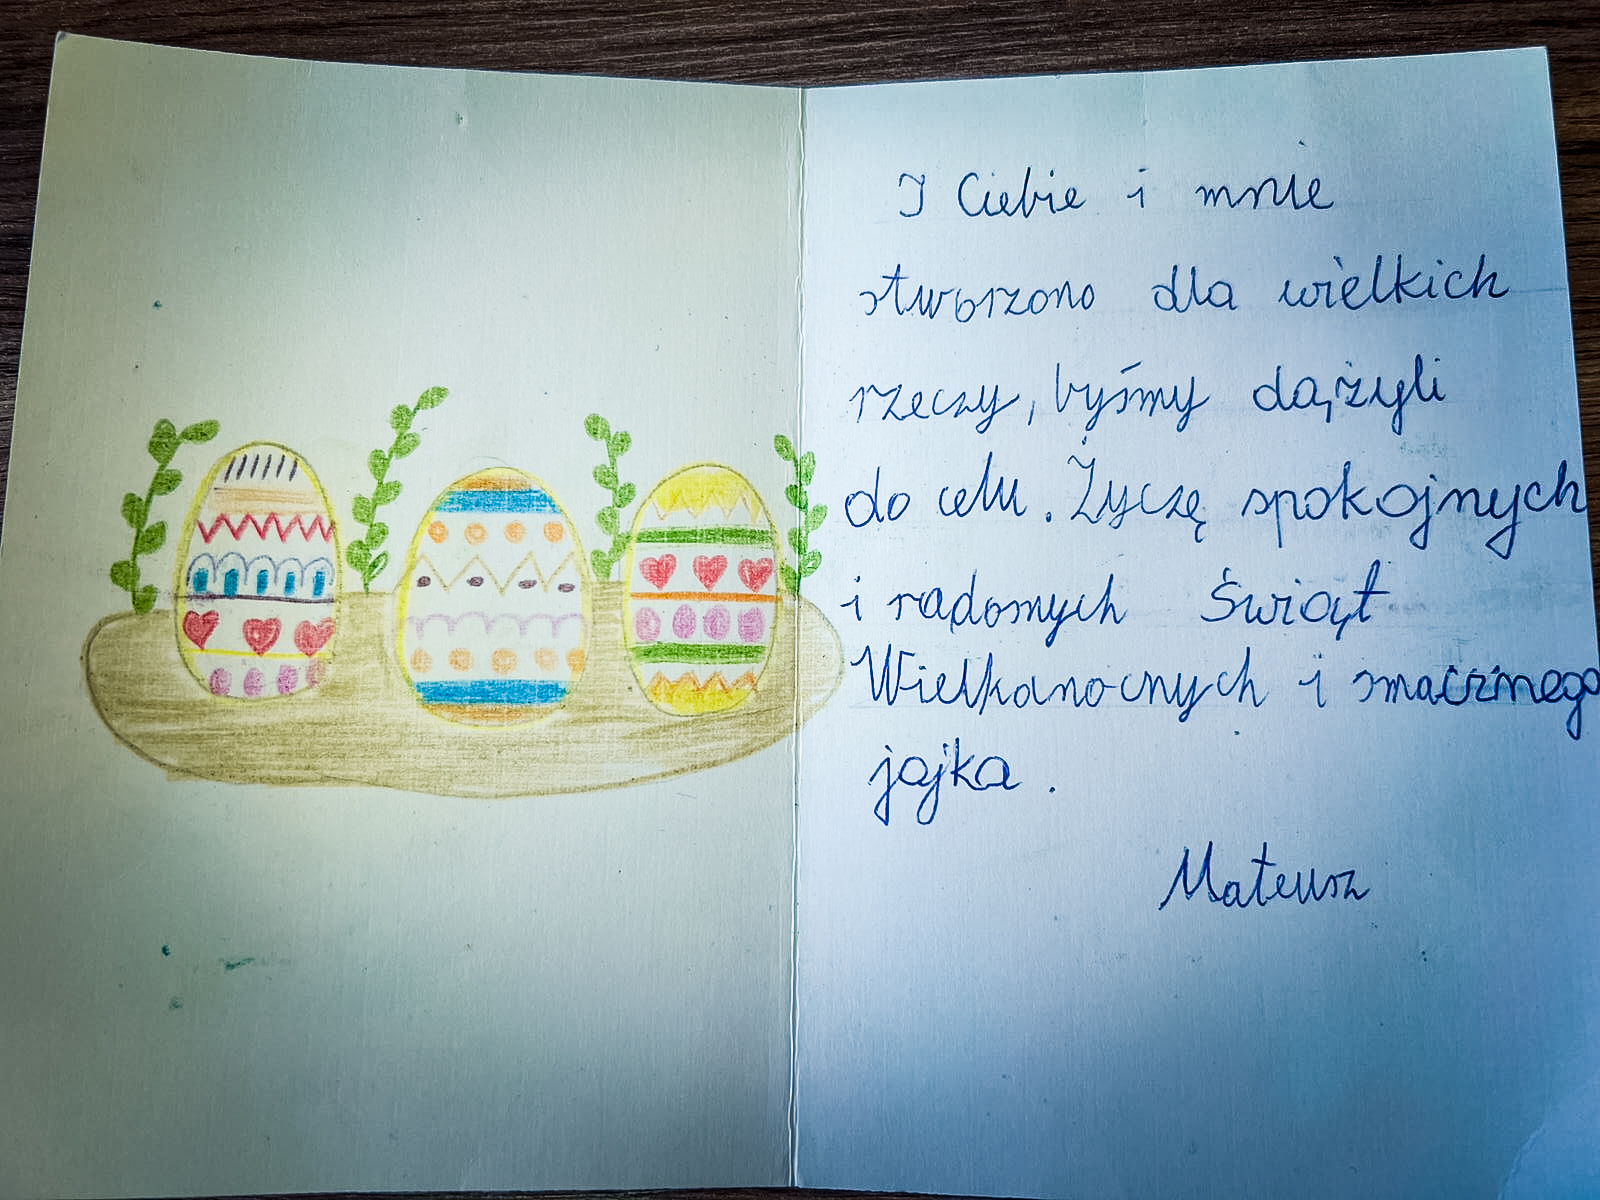 I Ciebie i mnie
stworzono dla wielkich
rzeczy, byśmy dążyli
do celu. Życzę spokojnych
i radomych Świąt
Wielkanocnych i smacznego
jajka.
Mateusz